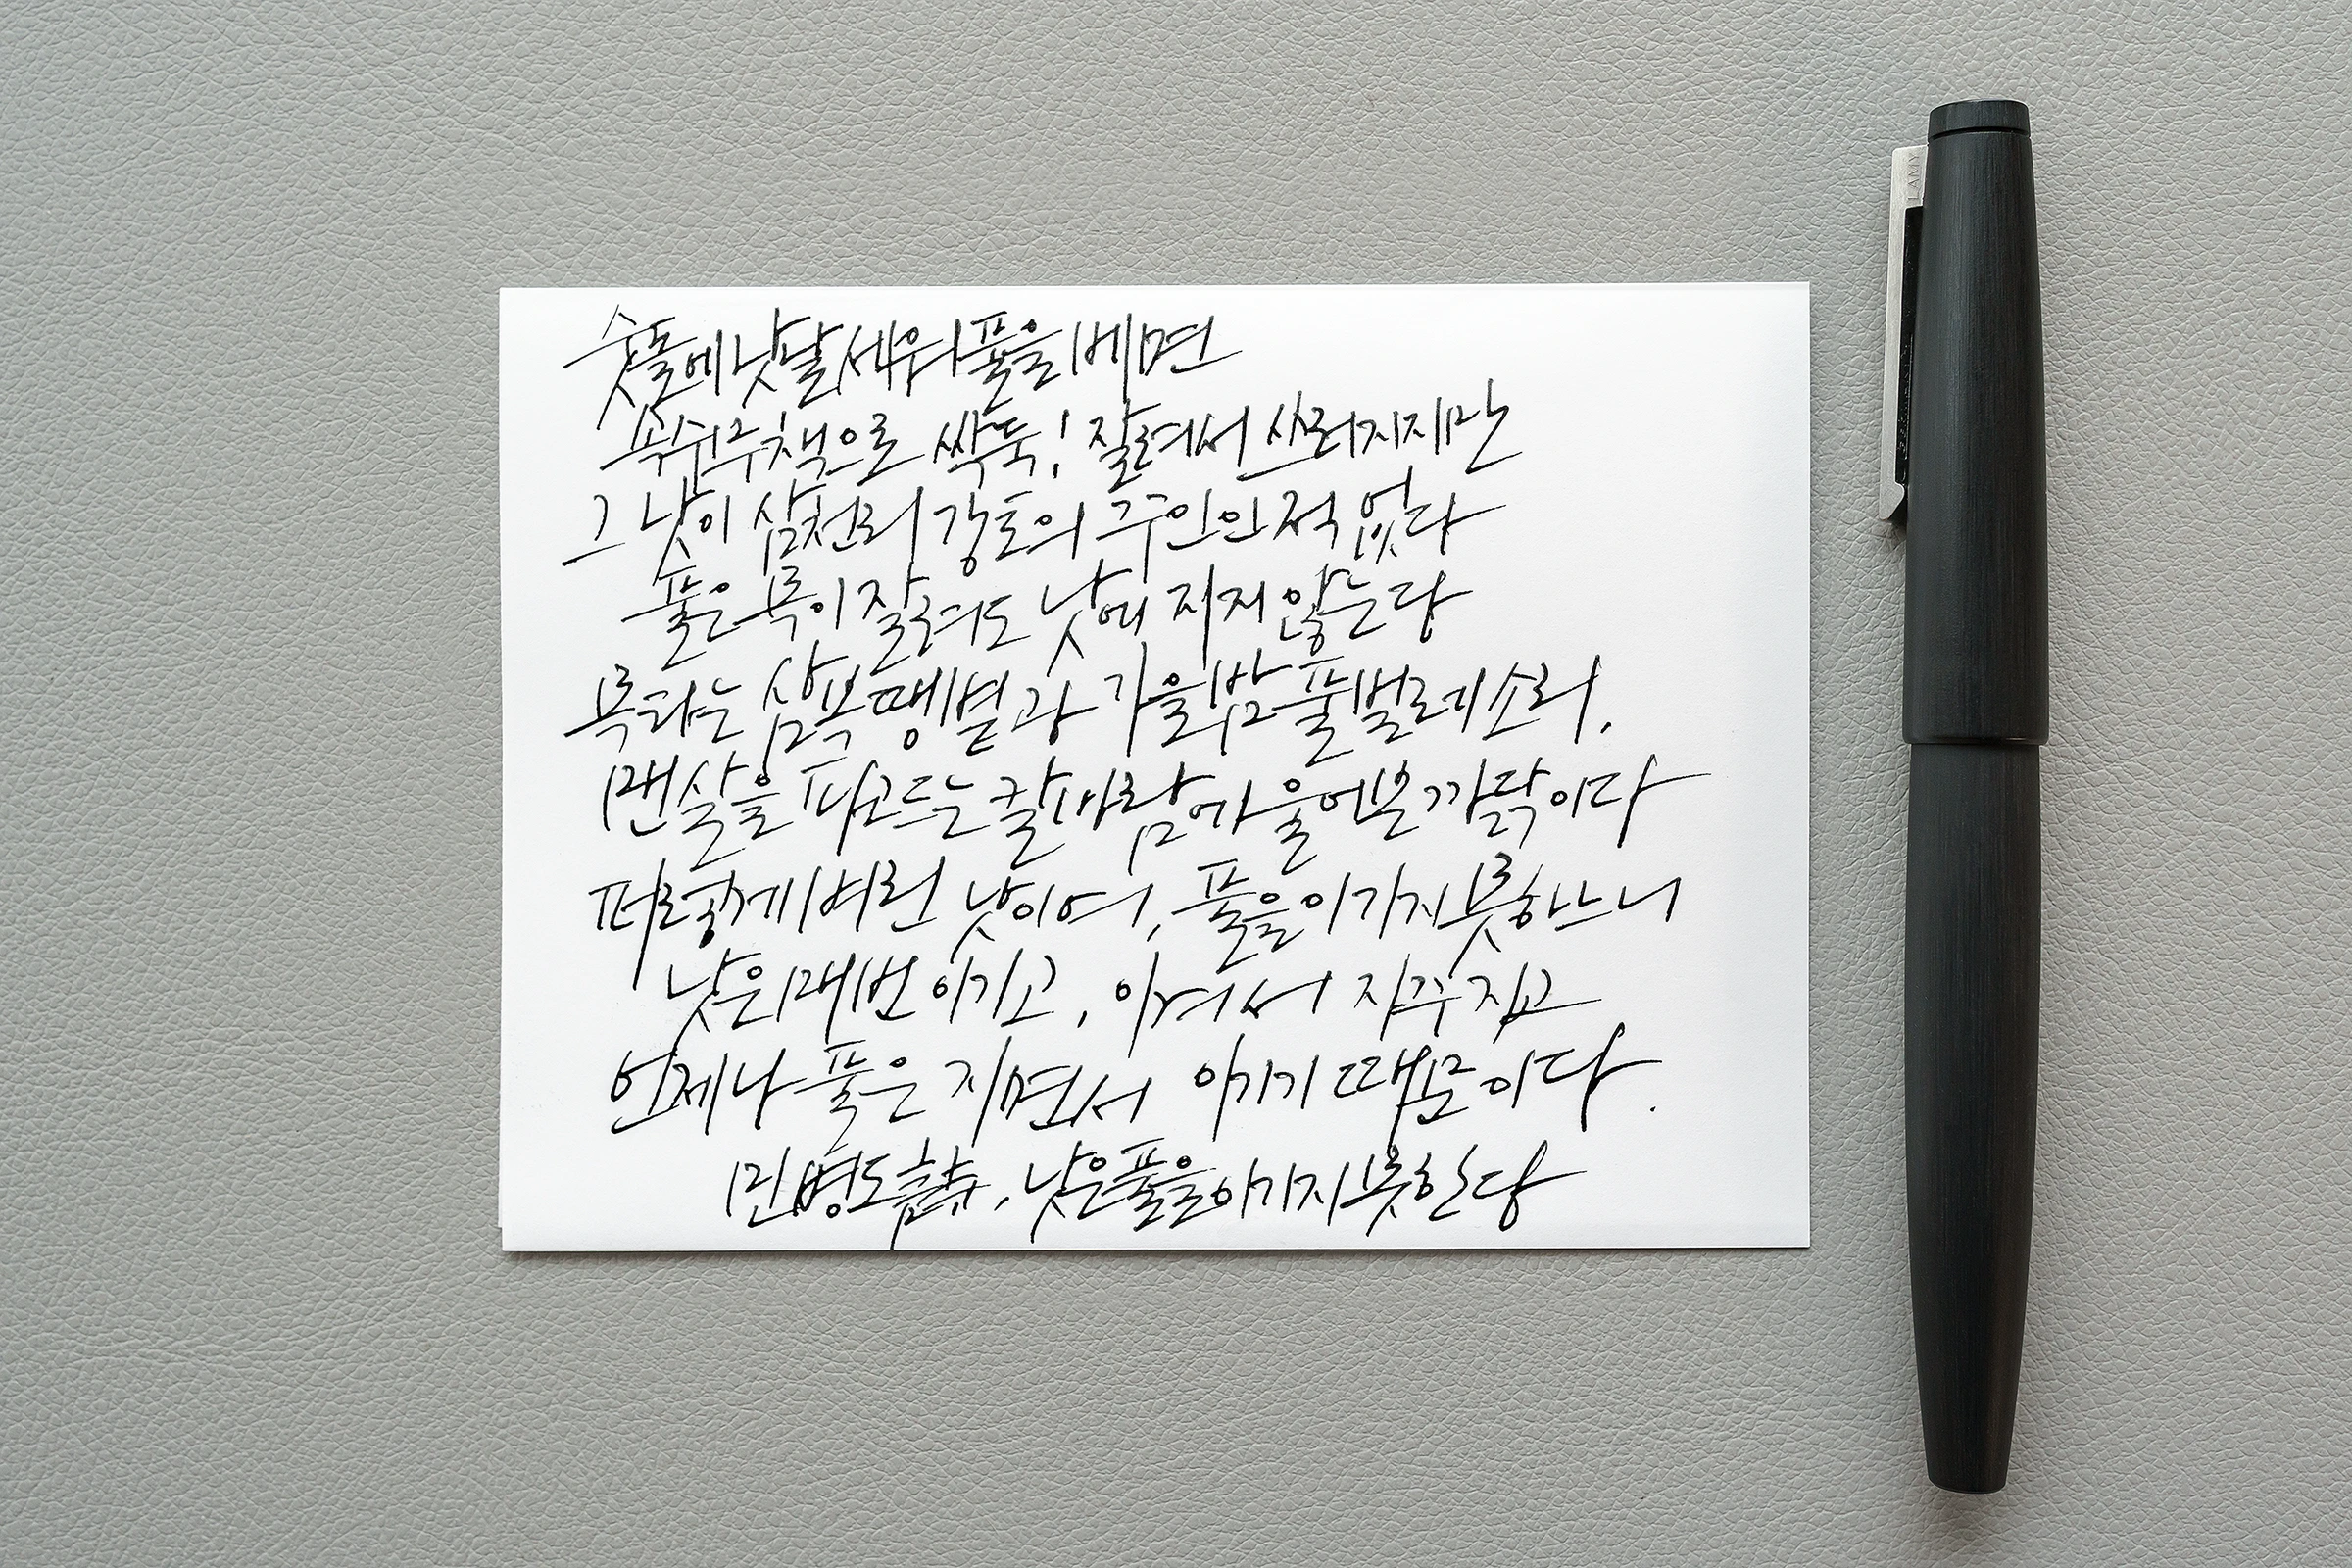 숫돌에 낫날 세워 풀을 베면
속수무책으로 싹둑! 잘려서 쓰러지지만
그 낫이 삼천리 강토의 주인인 적 없다
풀은 목이 잘려도 낫에 지지 않는다
목 타는 삼복 땡볕과 가을밤 풀벌레 소리,
맨살을 파고드는 칼바람에 울어본 까닭이다
퍼렇게 벼린 낫이여, 풀을 이기지 못하느니
낫은 매번 이기고, 이겨서 자꾸 지고
언제나 풀은 지면서 이기기 때문이다.
민병도, 낫은 풀을 이기지 못한다
LAMY